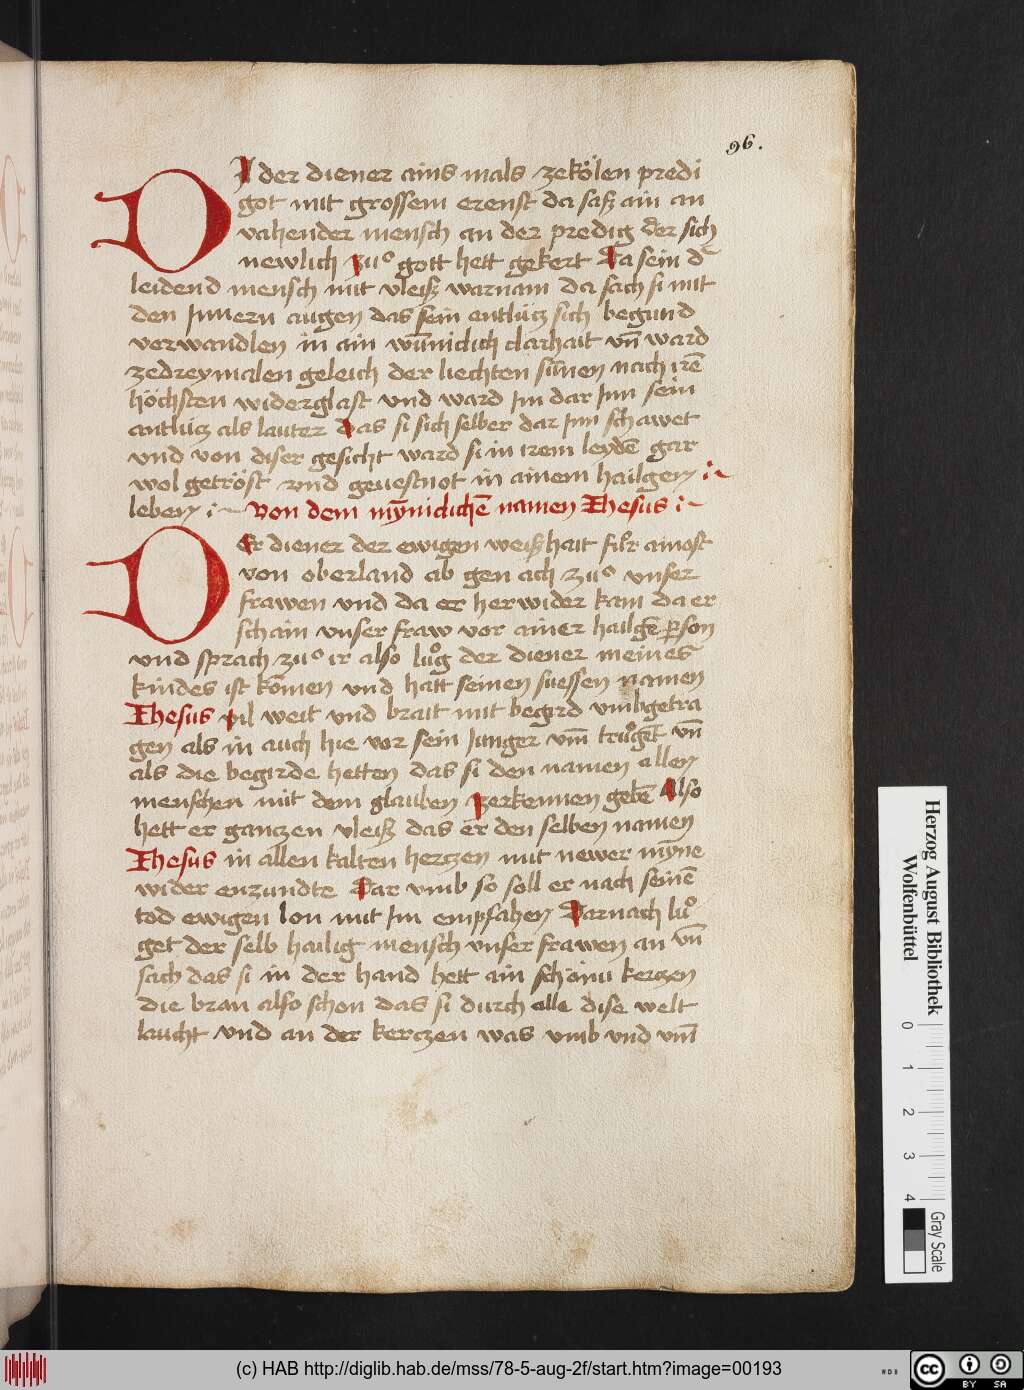 96.
DA der diener ains mals zekölen predi
got mit grossem ernst da saß ain an
vahender mensch an der predig der sich
newlich zuͦ gott hett gekert Da sein d̄
leidend mensch mit vleiß warnam da sach si mit
den Jnnern augen das sein entlütz sich begund
verwandlen in ain wu̅niclich clarhait vn̄ ward
zedreymalen geleich der liechten su̅nen nach irē
höchsten widerglast vnd ward Jm dar Jnn sein
antlütz als lauter Das si sich selber dar Jnn schawet
vnd von diser gesicht ward si in irem leydē gar
wol getröst vnd geuestnot in ainem hailgen
leben Von dem my̅niclichē namen Ihesus
DEr diener der ewigen weißhait für ainost
von oberland ab gen ach zuͦ vnser
frawen vnd da er herwider kam da er
schain vnser fraw vor ainer hailgē ꝑson
vnd sprach zuͦ ir also luͦg der diener meines
kindes ist ko̅men vnd hatt seinen suessen namen
Ihesus vil weit vnd brait mit begird vmbgetra
gen als in auch hie vor sein Junger vm̄ truͦgēt vn̄
als die begirde hetten das si den namen allen
menschen mit dem glauben zerkennen gebē Also
hett er gantzen vleiß das er den selben namen
Ihesus in allen kalten hertzen mit newer my̅ne
wider enzundte Dar vmb so soll er nach seinē
tod ewigen lon mit Jm empfahen Darnach luͦ
get der selb hailig mensch vnser frawen an vn̄
sach das si in der hand hett ain schöniu kertzen
die bran also schon das si durch alle dise welt
laucht vnd an der kertzen was vmb vnd vm̄
Herzog August Bibliothek
Wolfenbüttel
0 1 2 3 4
Gray Scale
(c) HAB http://diglib.hab.de/mss/78-5-aug-2f/start.htm?image=00193
WDB
cc BY SA